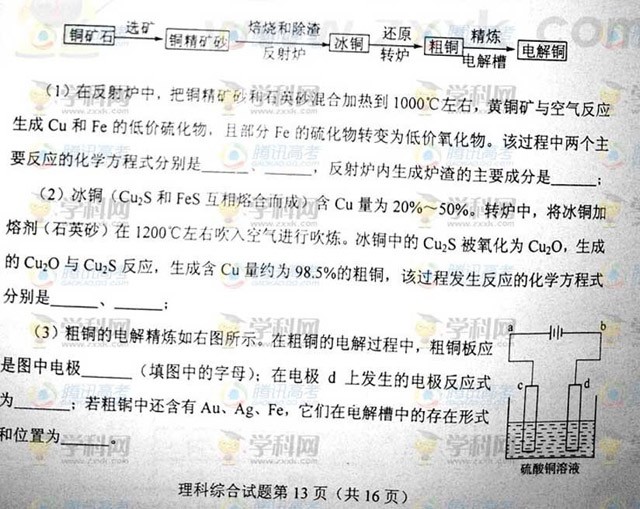 铜矿石 选矿 铜精矿砂 焙烧和除渣 反射炉 冰铜 还原 转炉 粗铜 精炼 电解槽 电解铜
(1)在反射炉中，把铜精矿砂和石英砂混合加热到1000℃左右，黄铜矿与空气反应
生成Cu和Fe的低价硫化物，且部分Fe的硫化物转变为低价氧化物。该过程中两个主
要反应的化学方程式分别是______、______，反射炉内生成炉渣的主要成分是______；
(2)冰铜（Cu₂S和FeS互相熔合而成）含Cu量为20%～50%。转炉中，将冰铜加
熔剂（石英砂）在1200℃左右吹入空气进行吹炼。冰铜中的Cu₂S被氧化为Cu₂O，生成
的Cu₂O与Cu₂S反应，生成含Cu量约为98.5%的粗铜，该过程发生反应的化学方程式
分别是______、______；
(3)粗铜的电解精炼如右图所示。在粗铜的电解过程中，粗铜板应
是图中电极______（填图中的字母）；在电极d上发生的电极反应式
为______；若粗铜中还含有Au、Ag、Fe，它们在电解槽中的存在形式
和位置为______。
a b
c d
硫酸铜溶液
理科综合试题第13页（共16页）
学科网
www.zxxk.com
腾讯高考